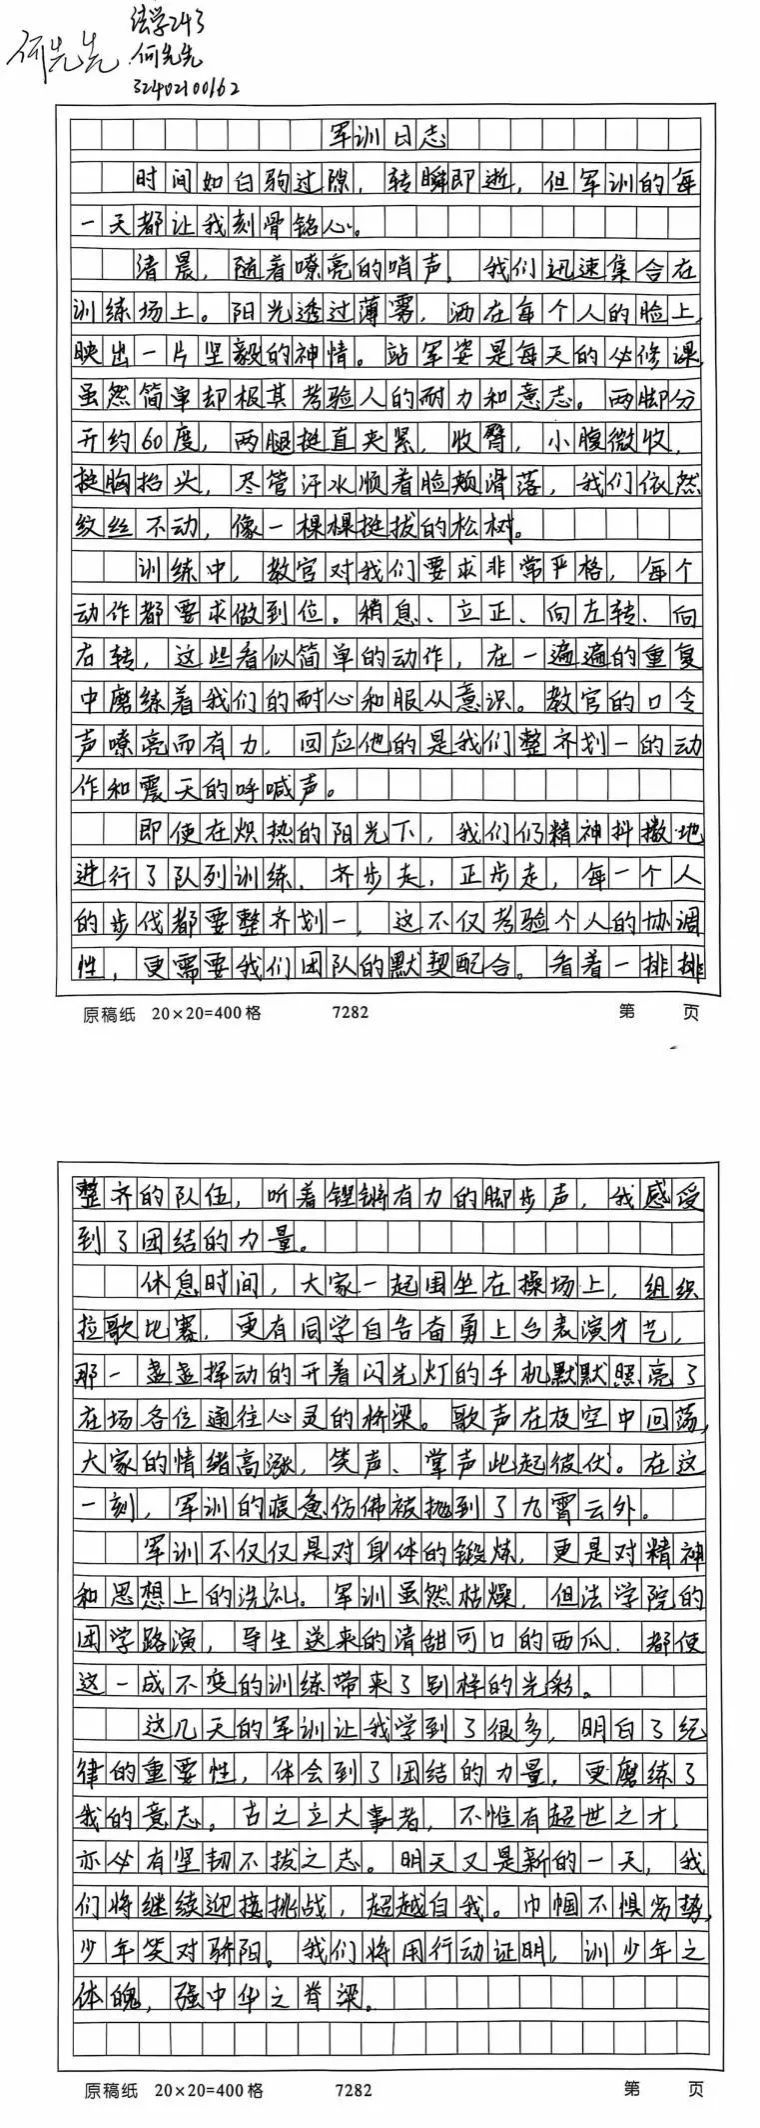 何先先
法学243
何先先
32402100162
军训日志
时间如白驹过隙，转瞬即逝，但军训的每
一天都让我刻骨铭心。
清晨，随着嘹亮的哨声，我们迅速集合在
训练场上。阳光透过薄雾，洒在每个人的脸上，
映出一片坚毅的神情。站军姿是每天的必修课，
虽然简单却极其考验人的耐力和意志。两脚分
开约60度，两腿挺直夹紧，收臀，小腹微收，
挺胸抬头，尽管汗水顺着脸颊滑落，我们依然
纹丝不动，像一棵棵挺拔的松树。
训练中，教官对我们要求非常严格，每个
动作都要求做到位。稍息、立正、向左转、向
右转，这些看似简单的动作，在一遍遍的重复
中磨练着我们的耐心和服从意识。教官的口令
声嘹亮而有力，回应他的是我们整齐划一的动
作和震天的呼喊声。
即使在炽热的阳光下，我们仍精神抖擞地
进行了队列训练，齐步走，正步走，每一个人
的步伐都要整齐划一，这不仅考验个人的协调
性，更需要我们团队的默契配合。看着一排排
原稿纸 20×20=400格 7282 第 页
整齐的队伍，听着铿锵有力的脚步声，我感受
到了团结的力量。
休息时间，大家一起围坐在操场上，组织
拉歌比赛，更有同学自告奋勇上台表演才艺，
那一盏盏挥动的开着闪光灯的手机默默照亮了
在场各位通往心灵的桥梁。歌声在夜空中回荡，
大家的情绪高涨，笑声、掌声此起彼伏。在这
一刻，军训的疲惫仿佛被抛到了九霄云外。
军训不仅仅是对身体的锻炼，更是对精神
和思想上的洗礼。军训虽然枯燥，但法学院的
团学路演，导生送来的清甜可口的西瓜，都使
这一成不变的训练带来了别样的光彩。
这几天的军训让我学到了很多，明白了纪
律的重要性，体会到了团结的力量，更磨练了
我的意志。古之立大事者，不惟有超世之才，
亦必有坚韧不拔之志。明天又是新的一天，我
们将继续迎接挑战，超越自我。巾帼不惧劣势，
少年笑对骄阳。我们将用行动证明，训少年之
体魄，强中华之脊梁。
原稿纸 20×20=400格 7282 第 页